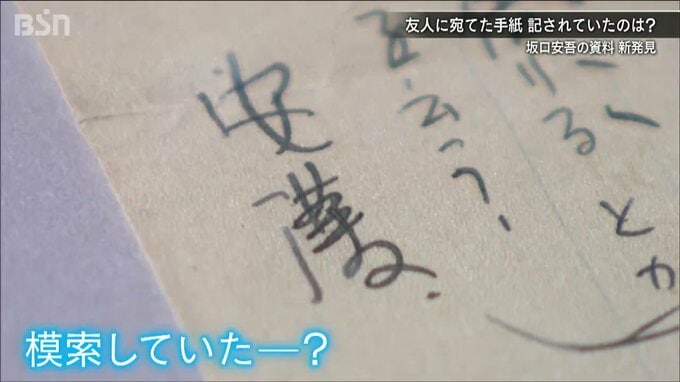 BSN
友人に宛てた手紙 記されていたのは?
坂口安吾の資料 新発見
とか
る
云う?
安
模索していた―?